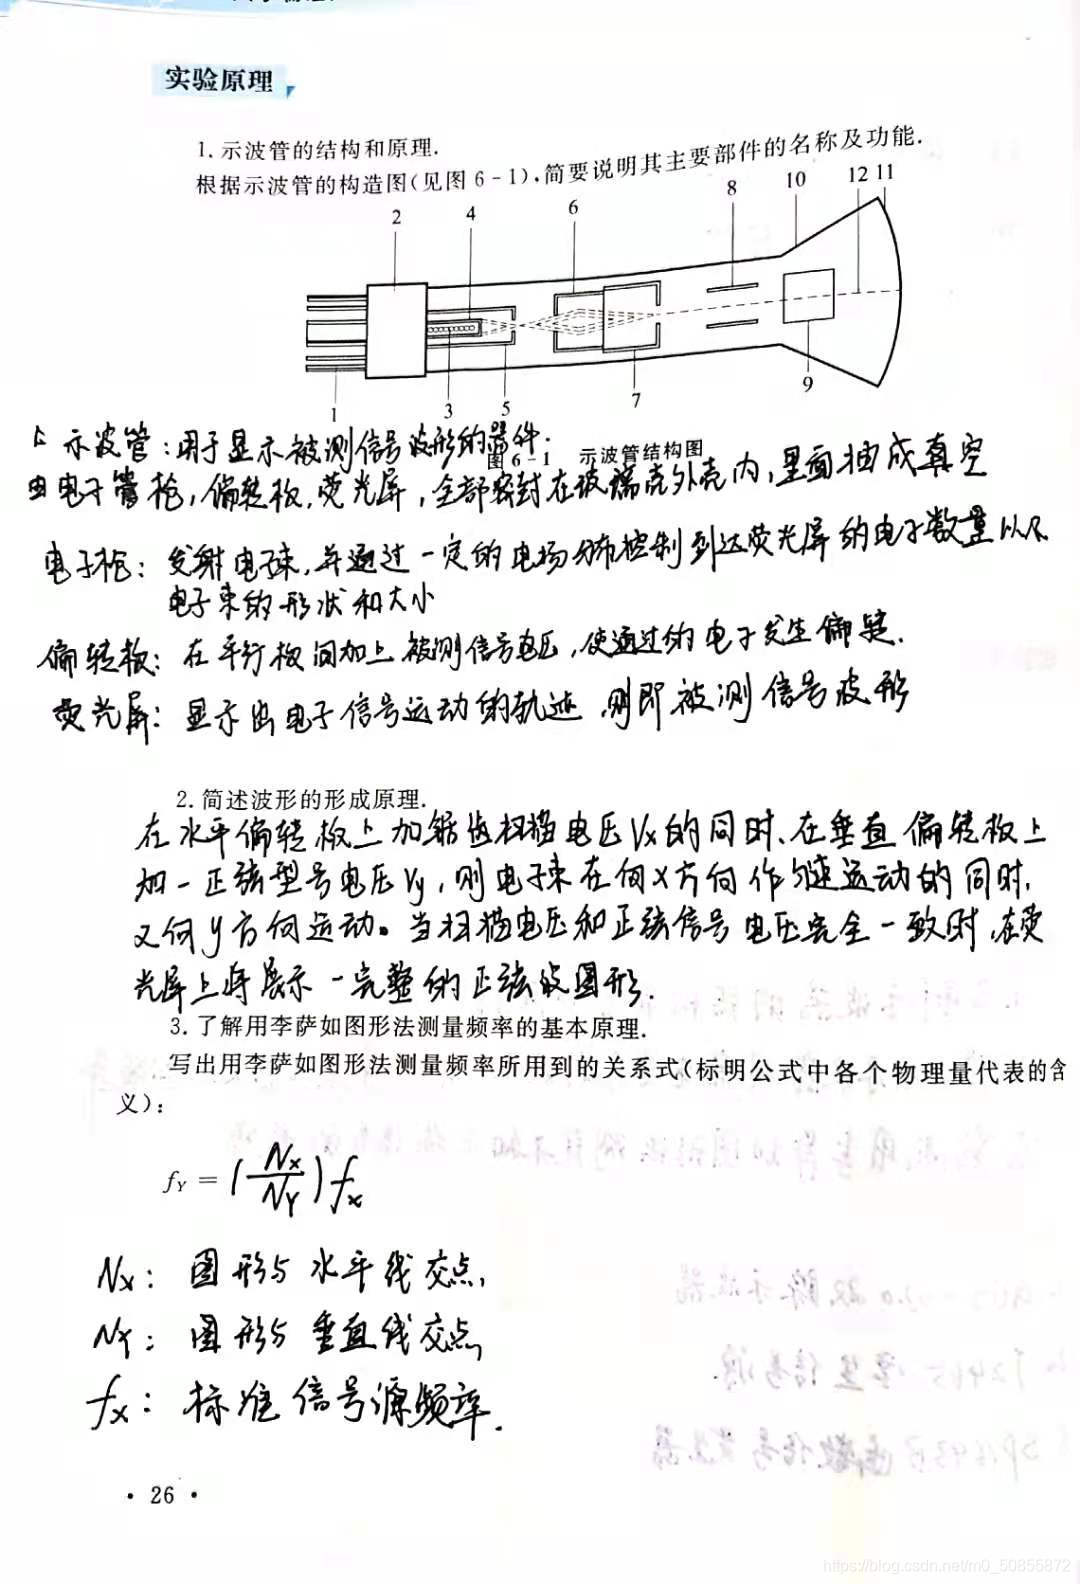 实验原理
1. 示波管的结构和原理.
根据示波管的构造图(见图 6-1),简要说明其主要部件的名称及功能.
2 4 6 8 10 12 11
1 3 5 7 9
图 6-1 示波管结构图
示波管：用于显示被测信号波形的器件.
由电子管枪,偏转板,荧光屏,全部密封在玻璃壳外壳内,里面抽成真空
电子枪：发射电子束,并通过一定的电场分布控制到达荧光屏的电子数量以及
电子束的形状和大小
偏转板：在平行板间加上被测信号电压,使通过的电子发生偏转.
荧光屏：显示出电子信号运动的轨迹,则即被测信号波形
2. 简述波形的形成原理.
在水平偏转板上加锯齿扫描电压Vx的同时、在垂直偏转板上
加一正弦型号电压Vy,则电子束在向X方向作匀速运动的同时,
又向y方向运动。当扫描电压和正弦信号电压完全一致时,在荧
光屏上将展示一完整的正弦波图形.
3. 了解用李萨如图形法测量频率的基本原理.
写出用李萨如图形法测量频率所用到的关系式(标明公式中各个物理量代表的含
义)：
fY = (Nx/NY)fx
Nx：图形与水平线交点,
NY：图形与垂直线交点,
fx：标准信号源频率.
· 26 ·
https://blog.csdn.net/m0_50855872